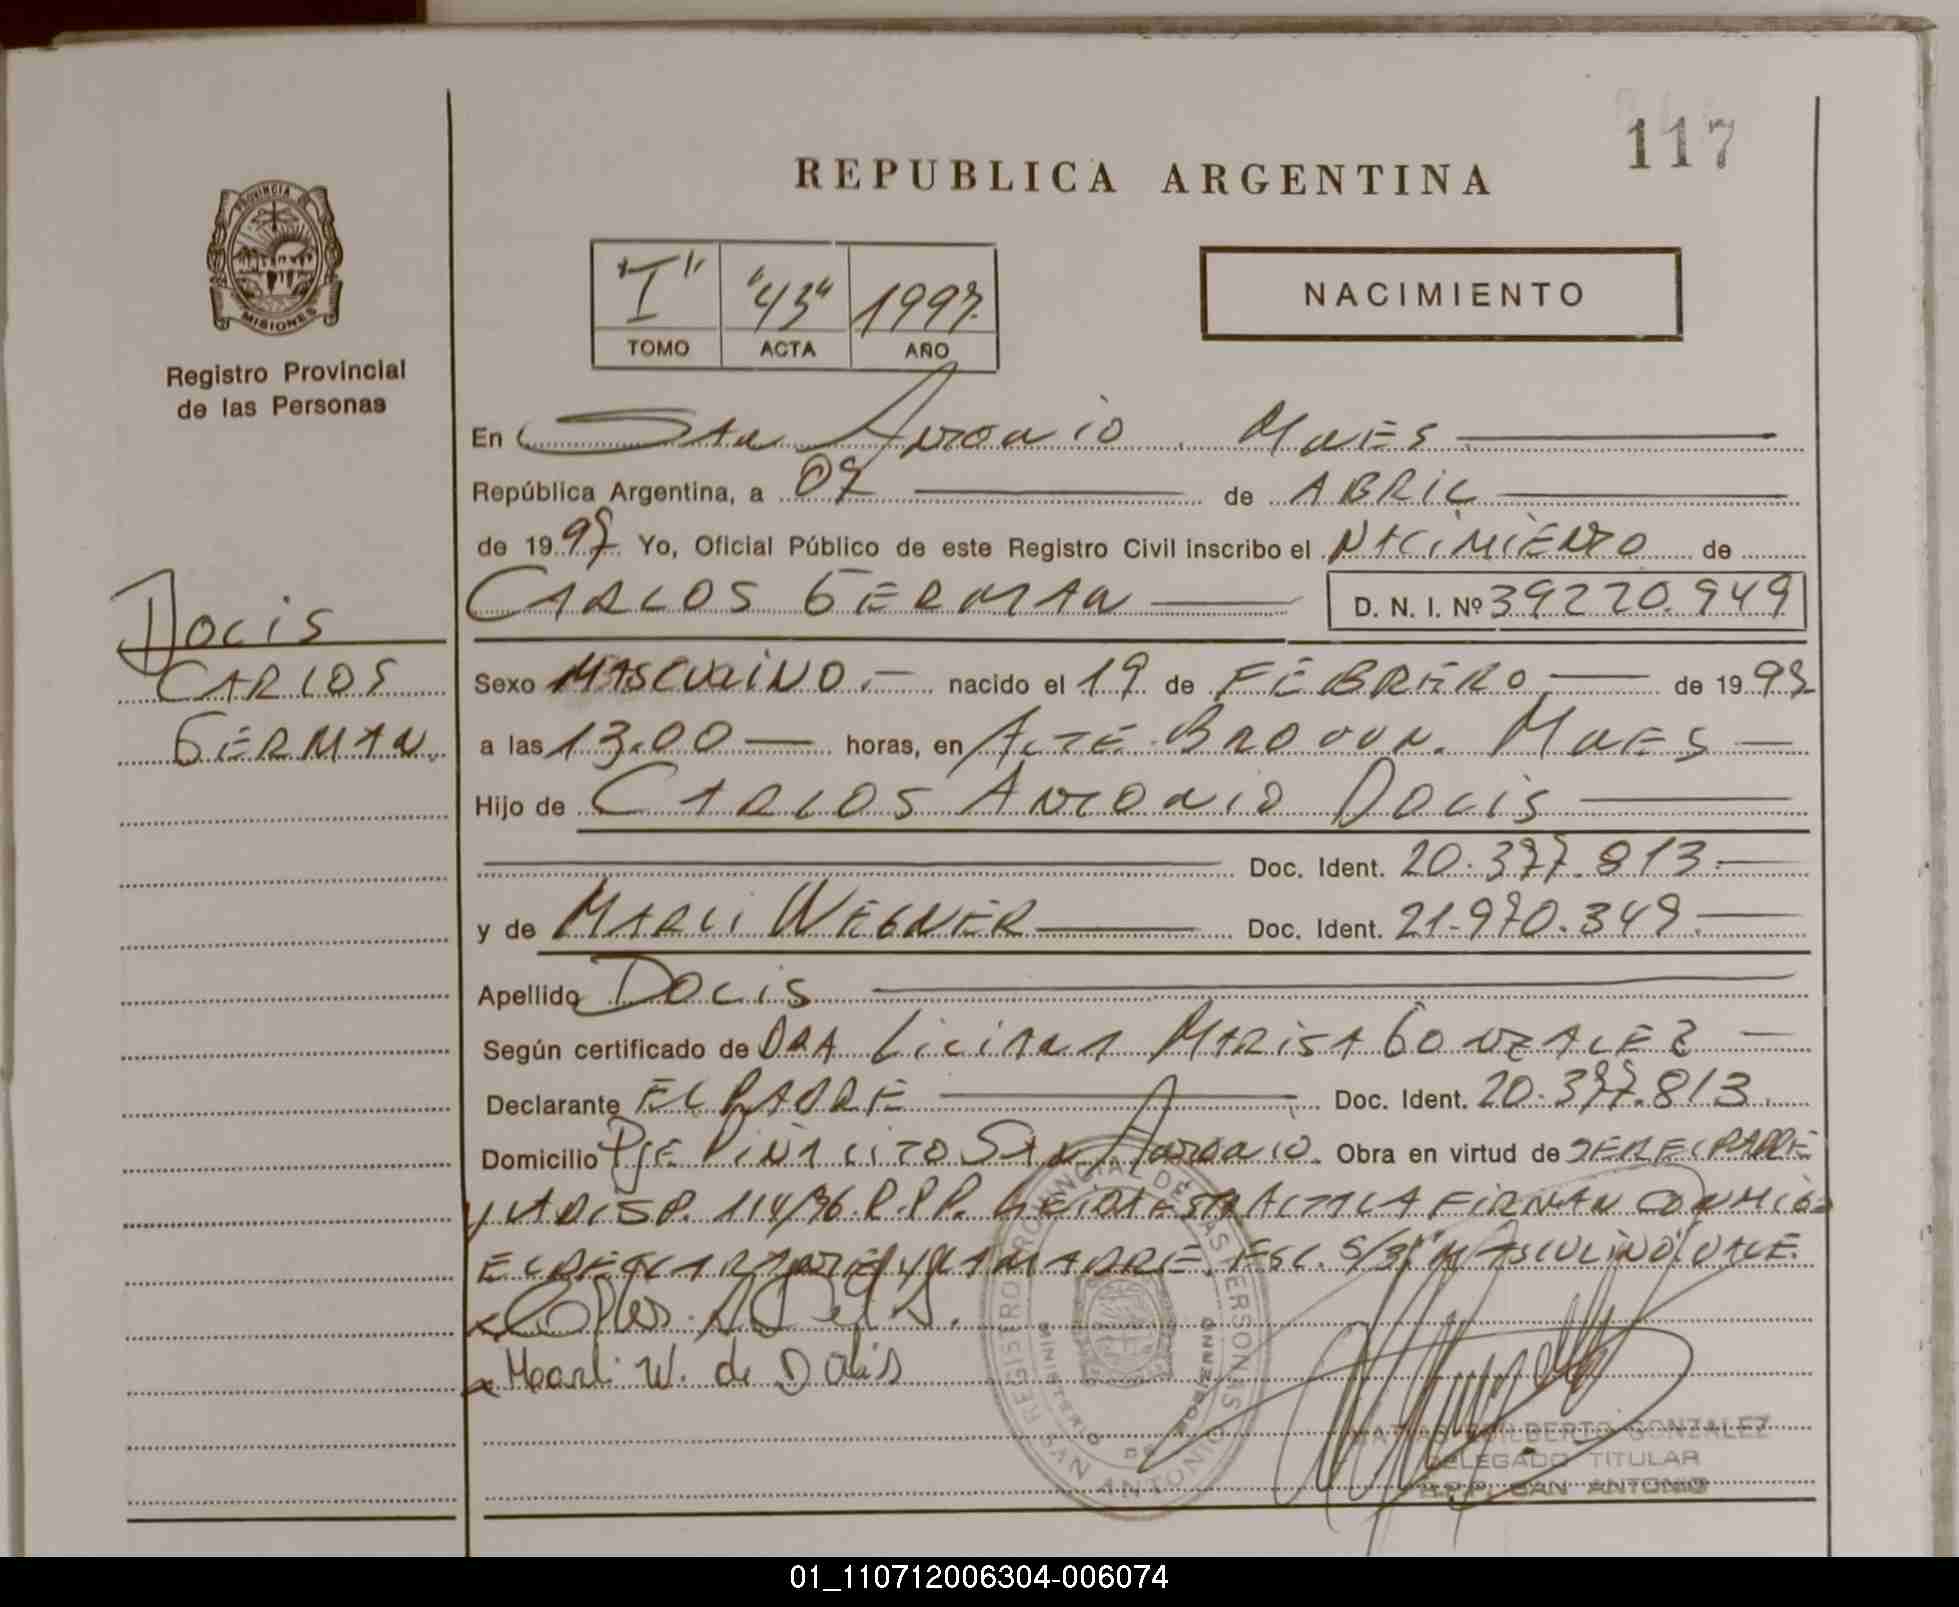 117
REPUBLICA ARGENTINA
PROVINCIA DE
MISIONES
Registro Provincial
de las Personas
"I" "43" 1997.
TOMO ACTA AÑO
NACIMIENTO
En San Antonio. Mnes
República Argentina, a 07 de ABRIL
de 1997 Yo, Oficial Público de este Registro Civil inscribo el NACIMIENTO de
CARLOS GERMAN D. N. I. Nº 39270.949
Docis
CARLOS
GERMAN.
Sexo MASCULINO.- nacido el 19 de FEBRERO de 1997
a las 13.00 horas, en ALTE BROWN. MNES
Hijo de CARLOS ANTONIO DOCIS
Doc. Ident. 20.377.813.
y de MARLI WEGNER Doc. Ident. 21.970.349.
Apellido DOCIS
Según certificado de DRA LILIANA MARISA GONZALEZ
Declarante EL PADRE Doc. Ident. 20.377.813.
Domicilio Pje PIÑALITO San Antonio. Obra en virtud de SER EL PADRE
Y LA DISP. 114/96.R.P.P. LEIDA ESTA ACTA LA FIRMAN CONMIGO
EL DECLARANTE Y LA MADRE. ESC. S/R "MASCULINO" VALE.
Marli W. de Dolis
REGISTRO PROVINCIAL DE LAS PERSONAS
MINISTERIO DE GOBIERNO
SAN ANTONIO
MATIAS GILBERTO GONZALEZ
DELEGADO TITULAR
R.P.P. SAN ANTONIO
01_110712006304-006074